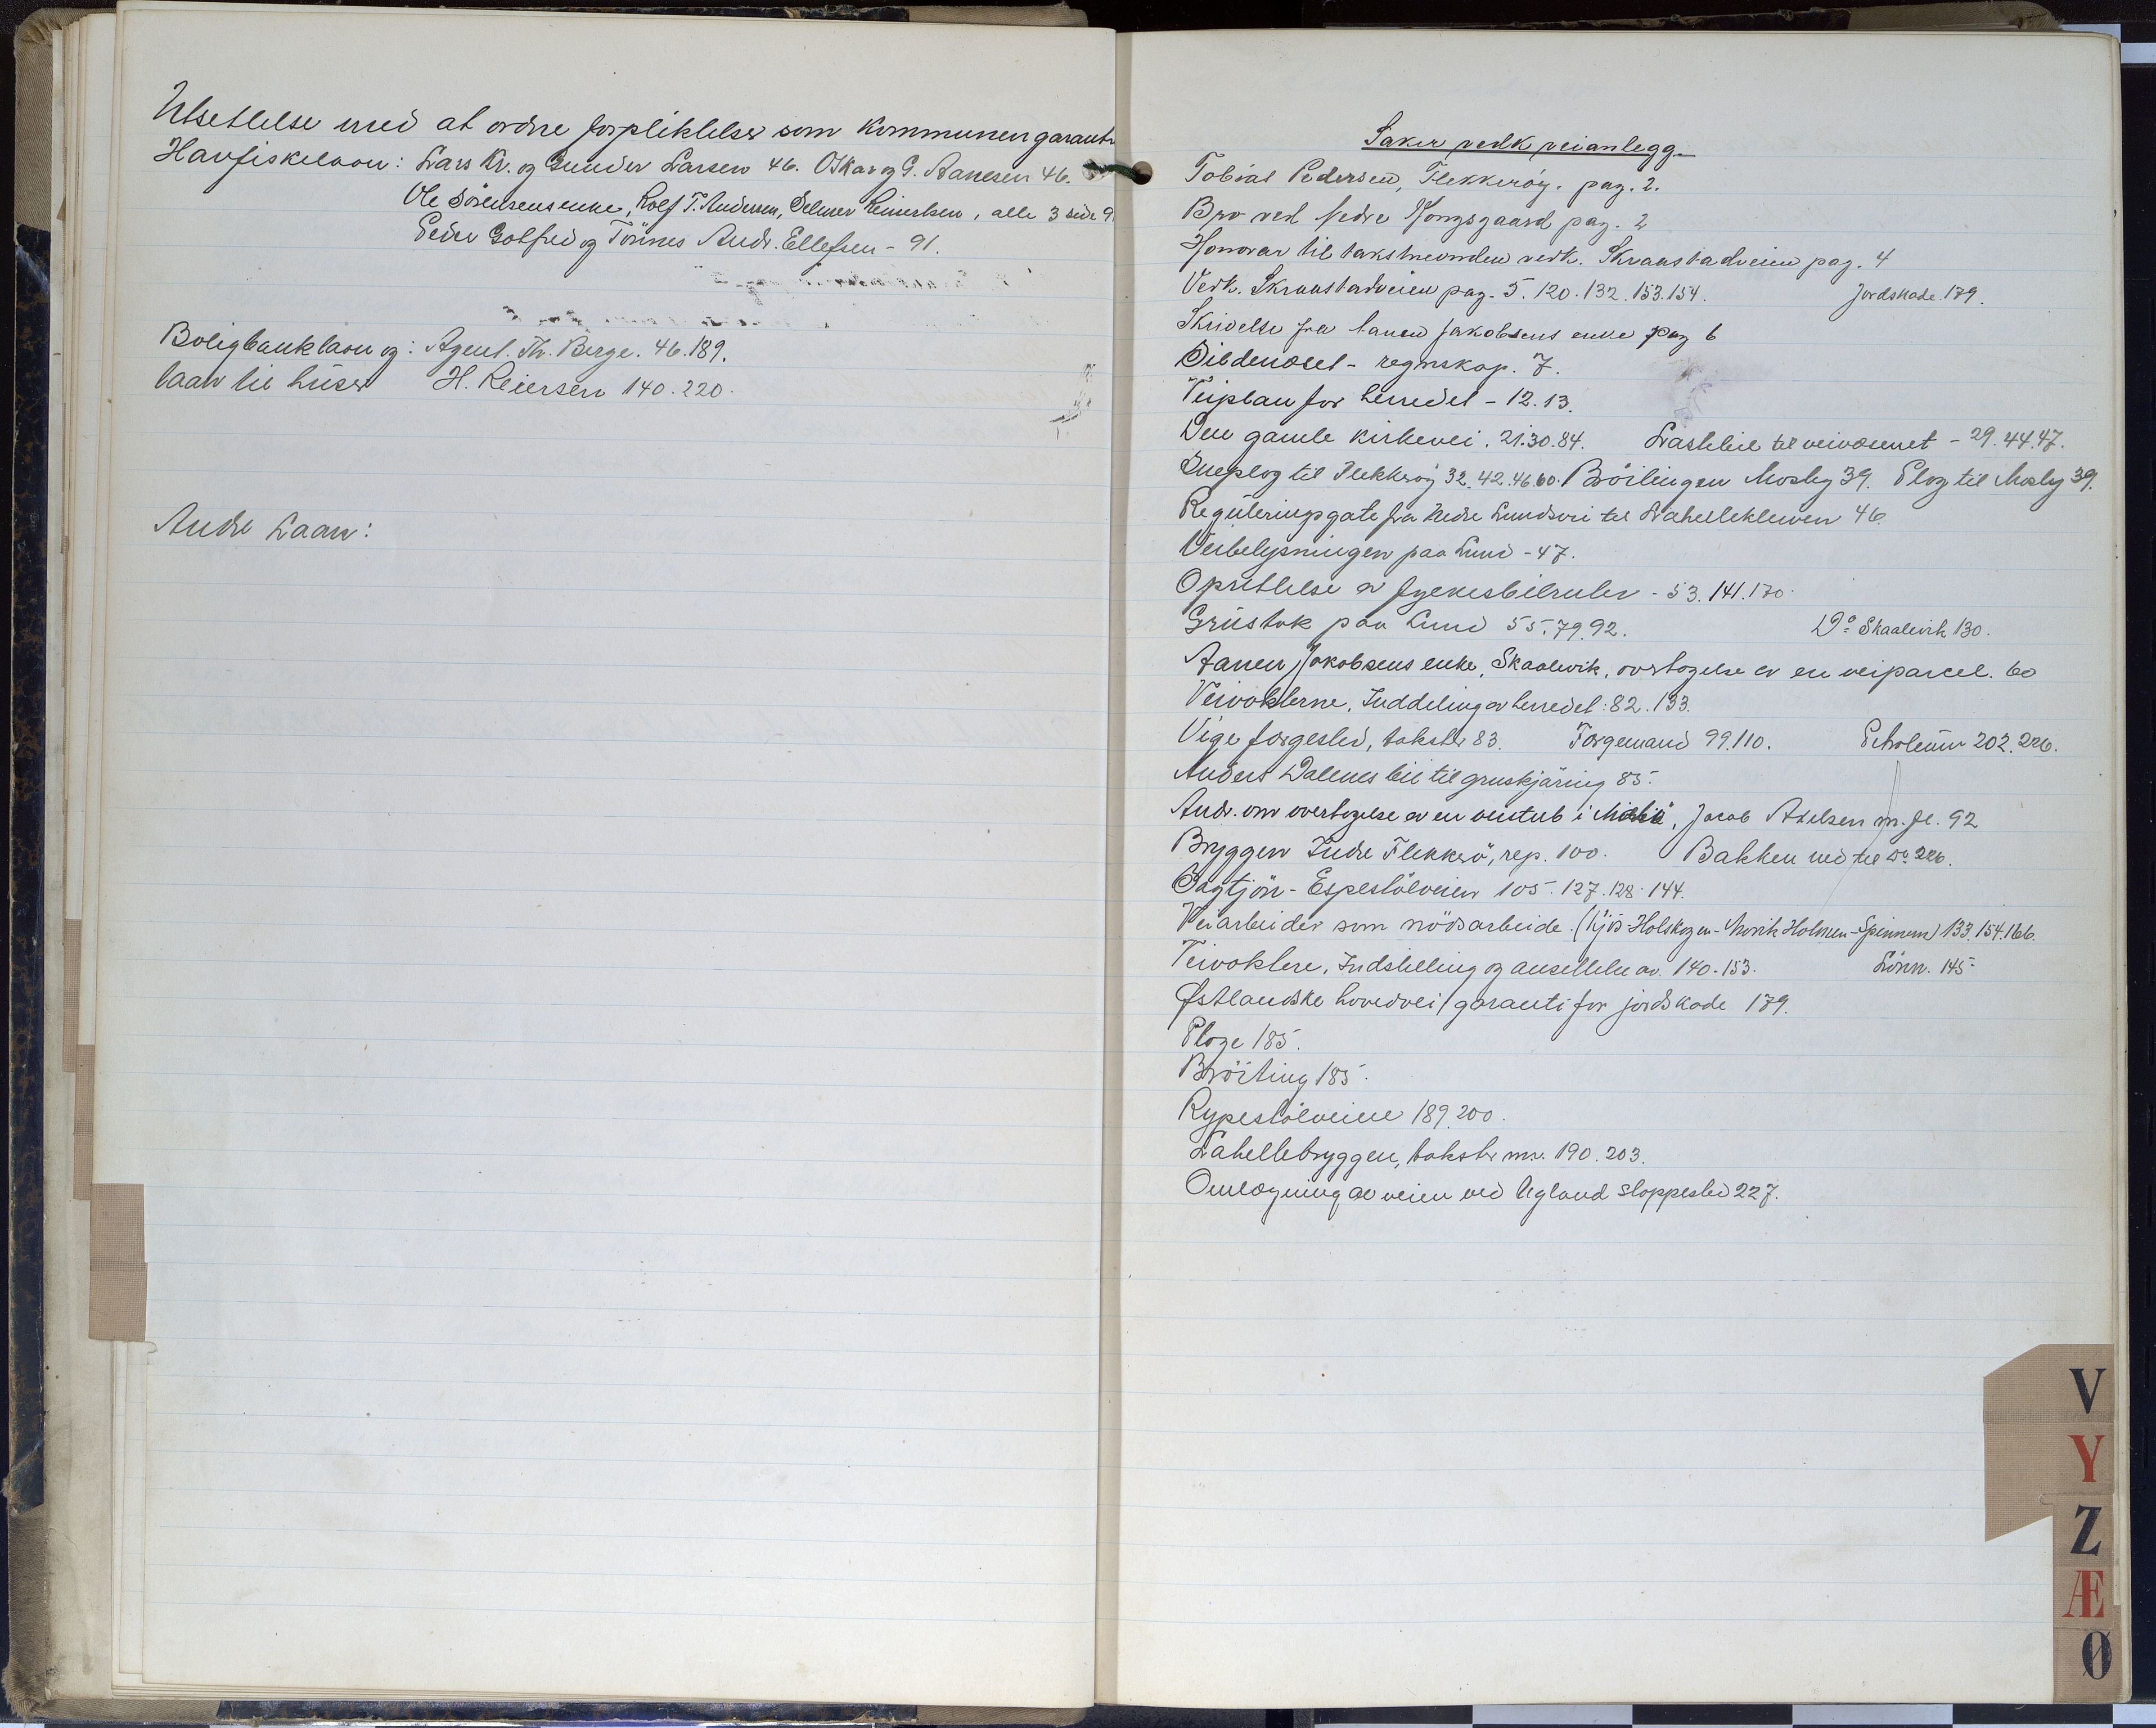 Utsettelse med at ordne forpliktelser som kommunen garant
Havfiskelaan: Lars Kr. og Gunder Larsen 46. Oskar og G. Aanesen 46.
Ole Sörensens enke, Rolf T. Andersen, Selmer Reinertsen, alle 3 side 9
Peder Gotfred og Tönnes Andr. Ellefsen - 91.
Boligbanklaan og: Agent. Th. Berge. 46.189.
laan til huser H. Reiersen 140.220.
Andre Laan:
Saker vedk veianlegg
Tobias Pedersen, Flekkeröy. pag. 2.
Bro ved Nedre Kongsgaard pag. 2
Honorar til takstmennden vedk. Skraastadveien pag. 4
Vedk. Skraastadveien pag. 5. 120. 132. 153. 154. Jordskade 179.
Skrivelse fra Aanen Jakobsens enke pag 6
regnskap. 7.
Veiplan for herredet - 12.13.
Den gamle kirkevei. 21.30.84. Lastebil til veivæsenet - 29.44.47.
Sneplog til Flekkeröy 32.42.46.60. Bröitingen Mosby 39. Plog til Mosby 39.
Reguleringsgate fra Nedre Lundsvei til Lahelleklewen 46.
Veibelysningen paa Lund - 47.
Oprettelse av 53.141.170.
Grustak paa Lund 55.79.92. Do Skaalevik 130.
Aanen Jakobsens enke, Skaalevik, overtagelse av en veiparcel. 60
Veivokterne. Inddeling av herredet: 82.133.
Vige færgested, takster 83. Færgemand 99.110. Petroleum 202.226.
Anders Dalenes bil til gruskjöring 85.
Andr. om overtagelse av en veistub i Jacob Axelsen m. fl. 92
Bryggen Indre Flekkerö, rep. 100. Bakken ned til do 226.
Sagtjön - Espestölveien 105. 127. 128. 144.
Veiarbeider som nödsarbeide. (Kjos-Holskogen - Narvik Holmen - Spinneren) 133. 154. 166.
Veivoktere, Indstilling og ansettelse av. 140. 153. Lönn. 145.
Østlandske hovedvei, garanti for jordskade 179.
Ploge 185.
Bröiting 185.
Rypestölveien 189.200.
Lahellebryggen, takster mv. 190.203.
Omlægning av veien ved Ugland stoppested 227.
V
Y
Z
Æ
Ø